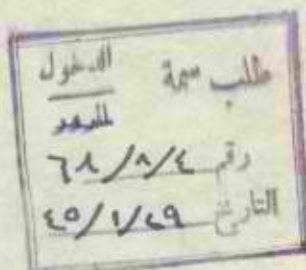 طلب سمة الدخول
للمصر
رقم ٦٨/٨/٤
التاريخ ٤٥/١/٢٩